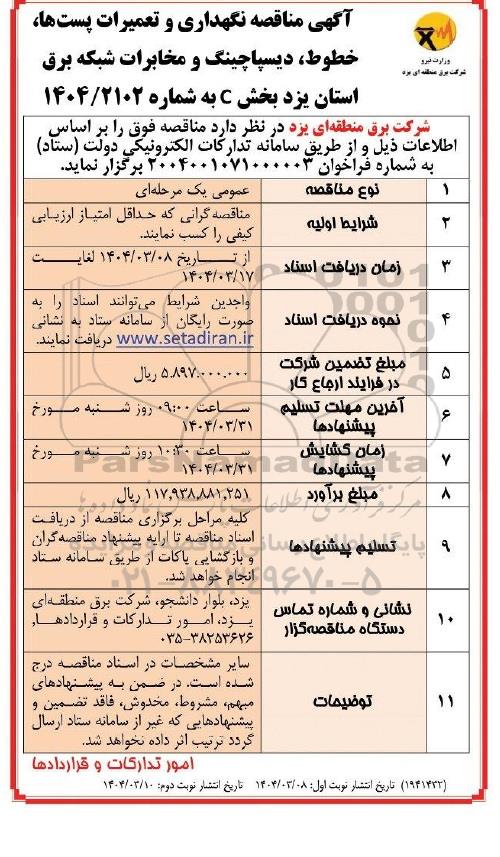 آگهی مناقصه نگهداری و تعمیرات پست‌ها،
خطوط، دیسپاچینگ و مخابرات شبکه برق
استان یزد بخش C به شماره ۱۴۰۴/۲۱۰۲
وزارت نیرو
شرکت برق منطقه ای یزد
شرکت برق منطقه‌ای یزد در نظر دارد مناقصه فوق را بر اساس
اطلاعات ذیل و از طریق سامانه تدارکات الکترونیکی دولت (ستاد)
به شماره فراخوان ۲۰۰۴۰۰۱۰۷۱۰۰۰۰۰۳ برگزار نماید.
۱ نوع مناقصه عمومی یک مرحله‌ای
۲ شرایط اولیه مناقصه‌گرانی که حداقل امتیاز ارزیابی
کیفی را کسب نمایند.
۳ زمان دریافت اسناد از تاریخ ۱۴۰۴/۰۳/۰۸ لغایت
۱۴۰۴/۰۳/۱۷
۴ نحوه دریافت اسناد واجدین شرایط می‌توانند اسناد را به
صورت رایگان از سامانه ستاد به نشانی
www.setadiran.ir دریافت نمایند.
۵ مبلغ تضمین شرکت
در فرایند ارجاع کار ۵.۸۹۷.۰۰۰.۰۰۰ ریال
۶ آخرین مهلت تسلیم
پیشنهادها ساعت ۰۹:۰۰ روز شنبه مورخ
۱۴۰۴/۰۳/۳۱
۷ زمان گشایش
پیشنهادها ساعت ۱۰:۳۰ روز شنبه مورخ
۱۴۰۴/۰۳/۳۱
۸ مبلغ برآورد ۱۱۷,۹۳۸,۸۸۱,۲۵۱ ریال
۹ تسلیم پیشنهادها کلیه مراحل برگزاری مناقصه از دریافت
اسناد مناقصه تا ارایه پیشنهاد مناقصه‌گران
و بازگشایی پاکات از طریق سامانه ستاد
انجام خواهد شد.
۱۰ نشانی و شماره تماس
دستگاه مناقصه‌گزار یزد، بلوار دانشجو، شرکت برق منطقه‌ای
یزد، امور تدارکات و قراردادها،
۰۳۵-۳۸۲۵۳۶۲۶
۱۱ توضیحات سایر مشخصات در اسناد مناقصه درج
شده است. در ضمن به پیشنهادهای
مبهم، مشروط، مخدوش، فاقد تضمین و
پیشنهادهایی که غیر از سامانه ستاد ارسال
گردد ترتیب اثر داده نخواهد شد.
امور تدارکات و قراردادها
(۱۹۴۱۴۳۲) تاریخ انتشار نوبت اول: ۱۴۰۴/۰۳/۰۸ تاریخ انتشار نوبت دوم: ۱۴۰۴/۰۳/۱۰
ParsNamadData
۰۲۱-۸۸۳۴۹۶۷۰-۵